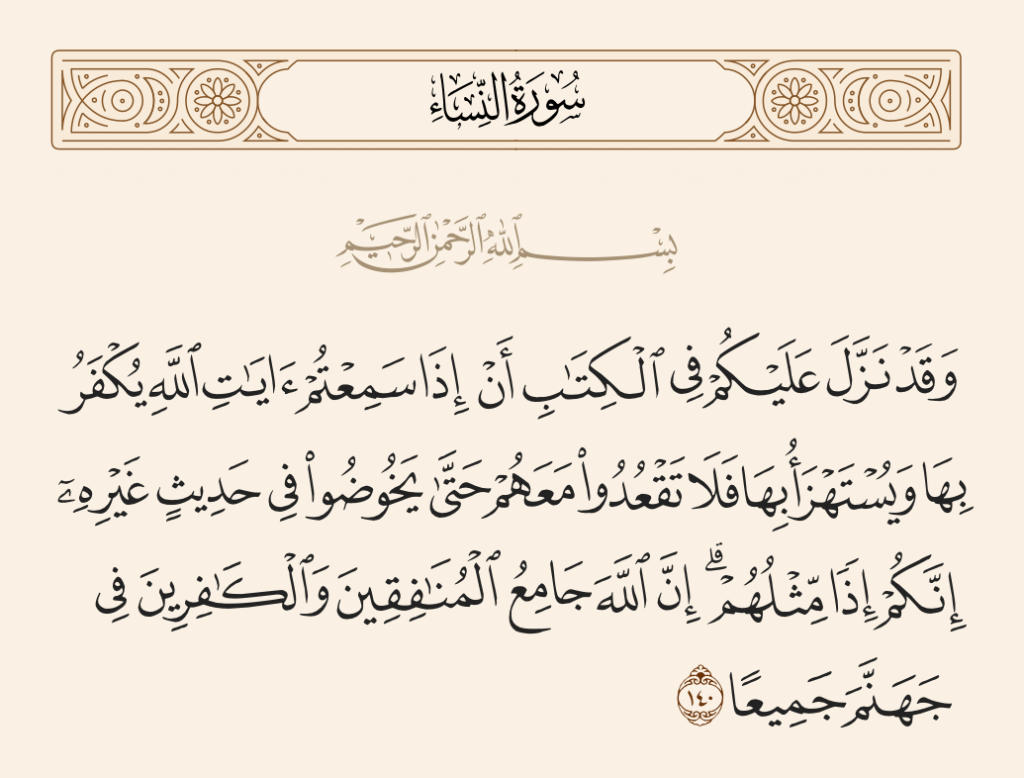 سُورَةُ النِّسَاءِ
بِسْمِ ٱللَّهِ ٱلرَّحْمَٰنِ ٱلرَّحِيمِ
وَقَدْ نَزَّلَ عَلَيْكُمْ فِى ٱلْكِتَٰبِ أَنْ إِذَا سَمِعْتُمْ ءَايَٰتِ ٱللَّهِ يُكْفَرُ
بِهَا وَيُسْتَهْزَأُ بِهَا فَلَا تَقْعُدُوا۟ مَعَهُمْ حَتَّىٰ يَخُوضُوا۟ فِى حَدِيثٍ غَيْرِهِۦٓ
إِنَّكُمْ إِذًا مِّثْلُهُمْ ۗ إِنَّ ٱللَّهَ جَامِعُ ٱلْمُنَٰفِقِينَ وَٱلْكَٰفِرِينَ فِى
جَهَنَّمَ جَمِيعًا ١٤٠